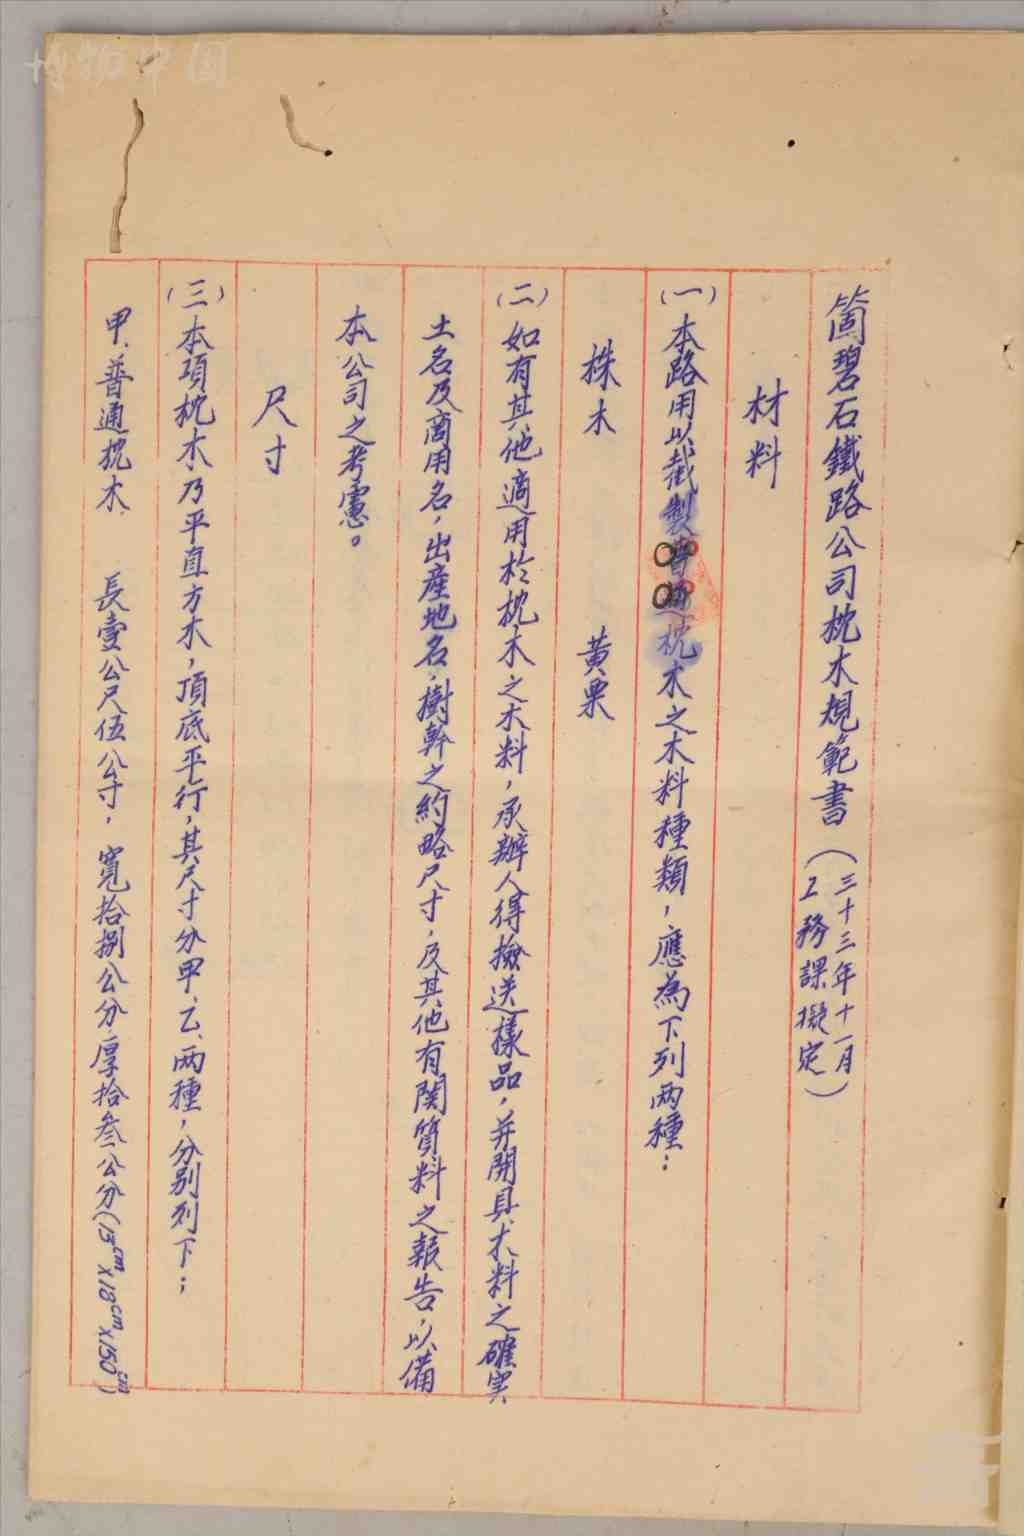 箇碧石鐵路公司枕木規範書（三十三年十一月
工務課擬定）
材料
（一）本路用以截製普通枕木之木料種類，應為下列两種：
株木　黄栗
（二）如有其他適用於枕木之木料，承辦人得撿送樣品，并開具木料之確实
土名及商用名，出產地名，樹幹之約略尺寸，及其他有関質料之報告，以備
本公司之考慮。
尺寸
（三）本項枕木乃平直方木，頂底平行，其尺寸分甲、乙、两種，分别列下：
甲.普通枕木　長壹公尺伍公寸，寬拾捌公分，厚拾叁公分（13cm×18cm×150cm）
博物中国